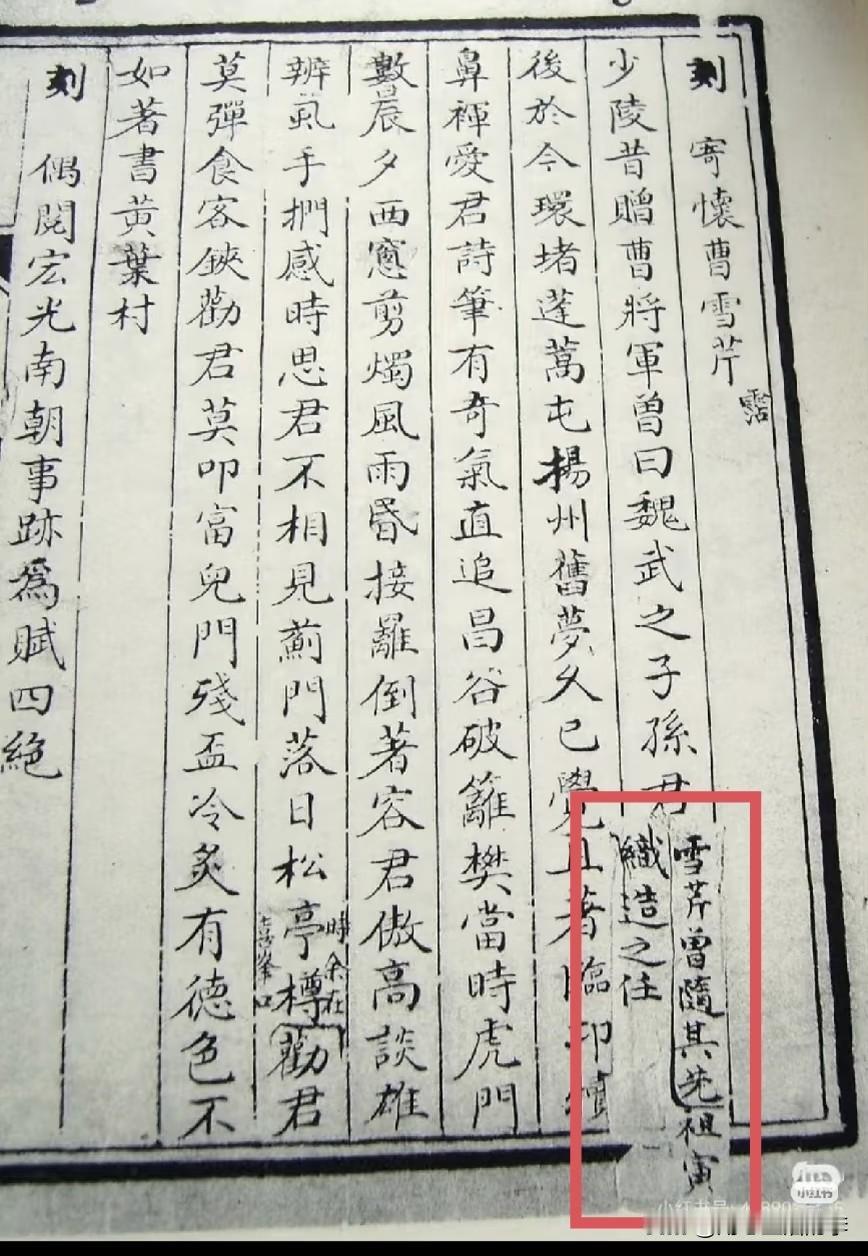 刻 寄懷曹雪芹 霑
少陵昔贈曹將軍曾曰魏武之子孫君
雪芹曾隨其先祖寅
織造之任
後於今環堵蓬蒿屯揚州舊夢久已覺且著臨卭
鼻褌愛君詩筆有奇氣直追昌谷破籬樊當時虎門
數晨夕西窻剪燭風雨昏接䍦倒著容君傲高談雄
辨虱手捫感時思君不相見薊門落日松亭樽勸君
時余在
喜峯口
莫彈食客鋏勸君莫叩富兒門殘盃冷炙有德色不
如著書黃葉村
刻 偶閱宏光南朝事跡為賦四絕
小红书